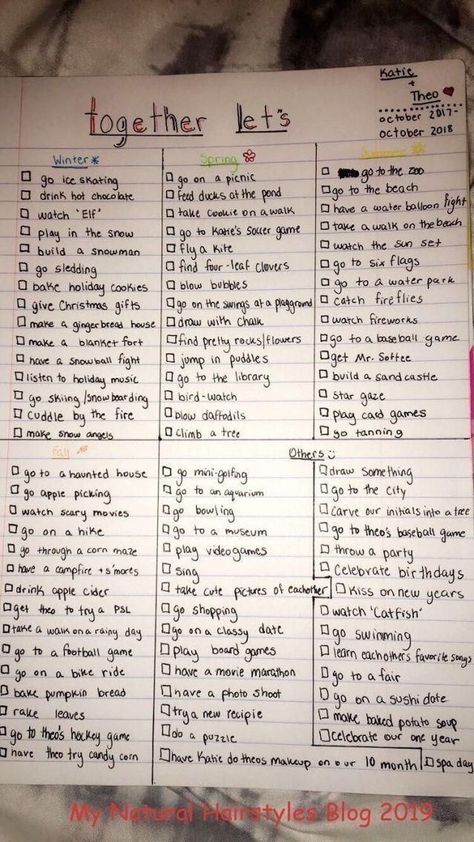 Katie
+
Theo
october 2017-
october 2018
together let's
Winter
go ice skating
drink hot chocolate
watch "Elf"
play in the snow
build a snowman
go sledding
bake holiday cookies
give Christmas gifts
make a gingerbread house
make a blanket fort
have a snowball fight
listen to holiday music
go skiing/snowboarding
cuddle by the fire
make snow angels
Spring
go on a picnic
feed ducks at the pond
take Cookie on a walk
go to Katie's soccer game
fly a kite
find four-leaf clovers
blow bubbles
go on the swings at a playground
draw with chalk
find pretty rocks/flowers
jump in puddles
go to the library
bird-watch
blow daffodils
climb a tree
Summer
go to the zoo
go to the beach
have a water balloon fight
take a walk on the beach
watch the sun set
go to six flags
go to a water park
catch fireflies
watch fireworks
go to a baseball game
get Mr. Softee
build a sandcastle
star gaze
play card games
go tanning
Fall
go to a haunted house
go apple picking
watch scary movies
go on a hike
go through a corn maze
have a campfire + s'mores
drink apple cider
get theo to try a PSL
take a walk on a rainy day
go to a football game
go on a bike ride
bake pumpkin bread
rake leaves
go to theo's hockey game
have theo try candy corn
Others
go mini-golfing
go to an aquarium
go bowling
go to a museum
play videogames
sing
take cute pictures of eachother
go shopping
go on a classy date
play board games
have a movie marathon
have a photo shoot
try a new recipie
do a puzzle
have Katie do theos makeup on our 10 month
draw something
go to the city
carve our initials into a tree
go to theo's baseball game
throw a party
celebrate birthdays
kiss on new years
watch 'Catfish'
go swimming
learn eachothers favorite songs
go to a fair
go on a sushi date
make baked potato soup
celebrate our one year
spa day
My Natural Hairstyles Blog 2019